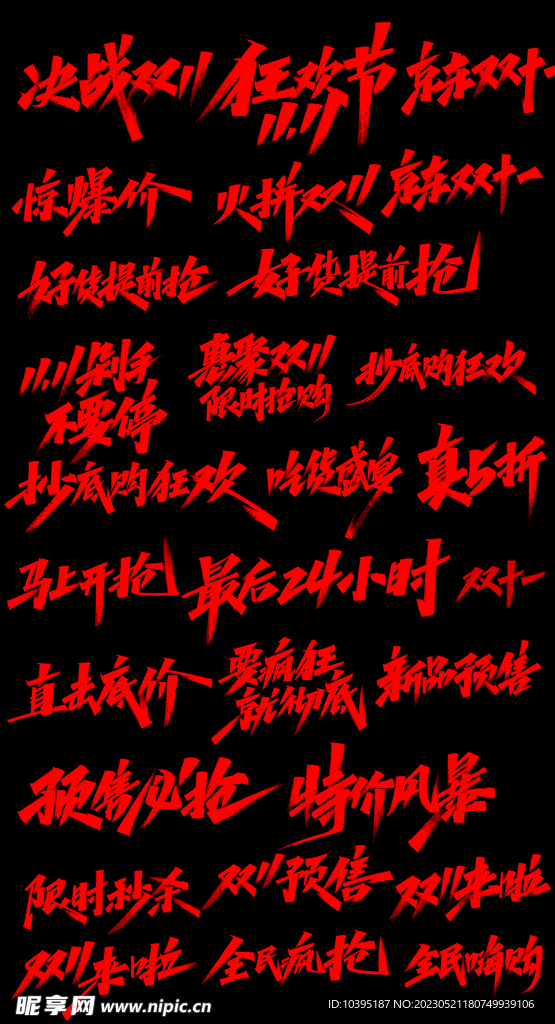 决战双11 狂欢节 京东双十一
11.11
惊爆价 火拼双11 京东双十一
好货提前抢 好货提前抢
11.11剁手 惠聚双11 抄底购狂欢
不要停 限时抢购
抄底购狂欢 吃货盛宴 真5折
马上开抢 最后24小时 双十一
直击底价 要疯狂 新品预售
就彻底
预售必抢 特价风暴
限时秒杀 双11预售 双11来啦
双11来啦 全民疯抢 全民嗨购
昵享网 www.nipic.cn
ID:10395187 NO:20230521180749939106